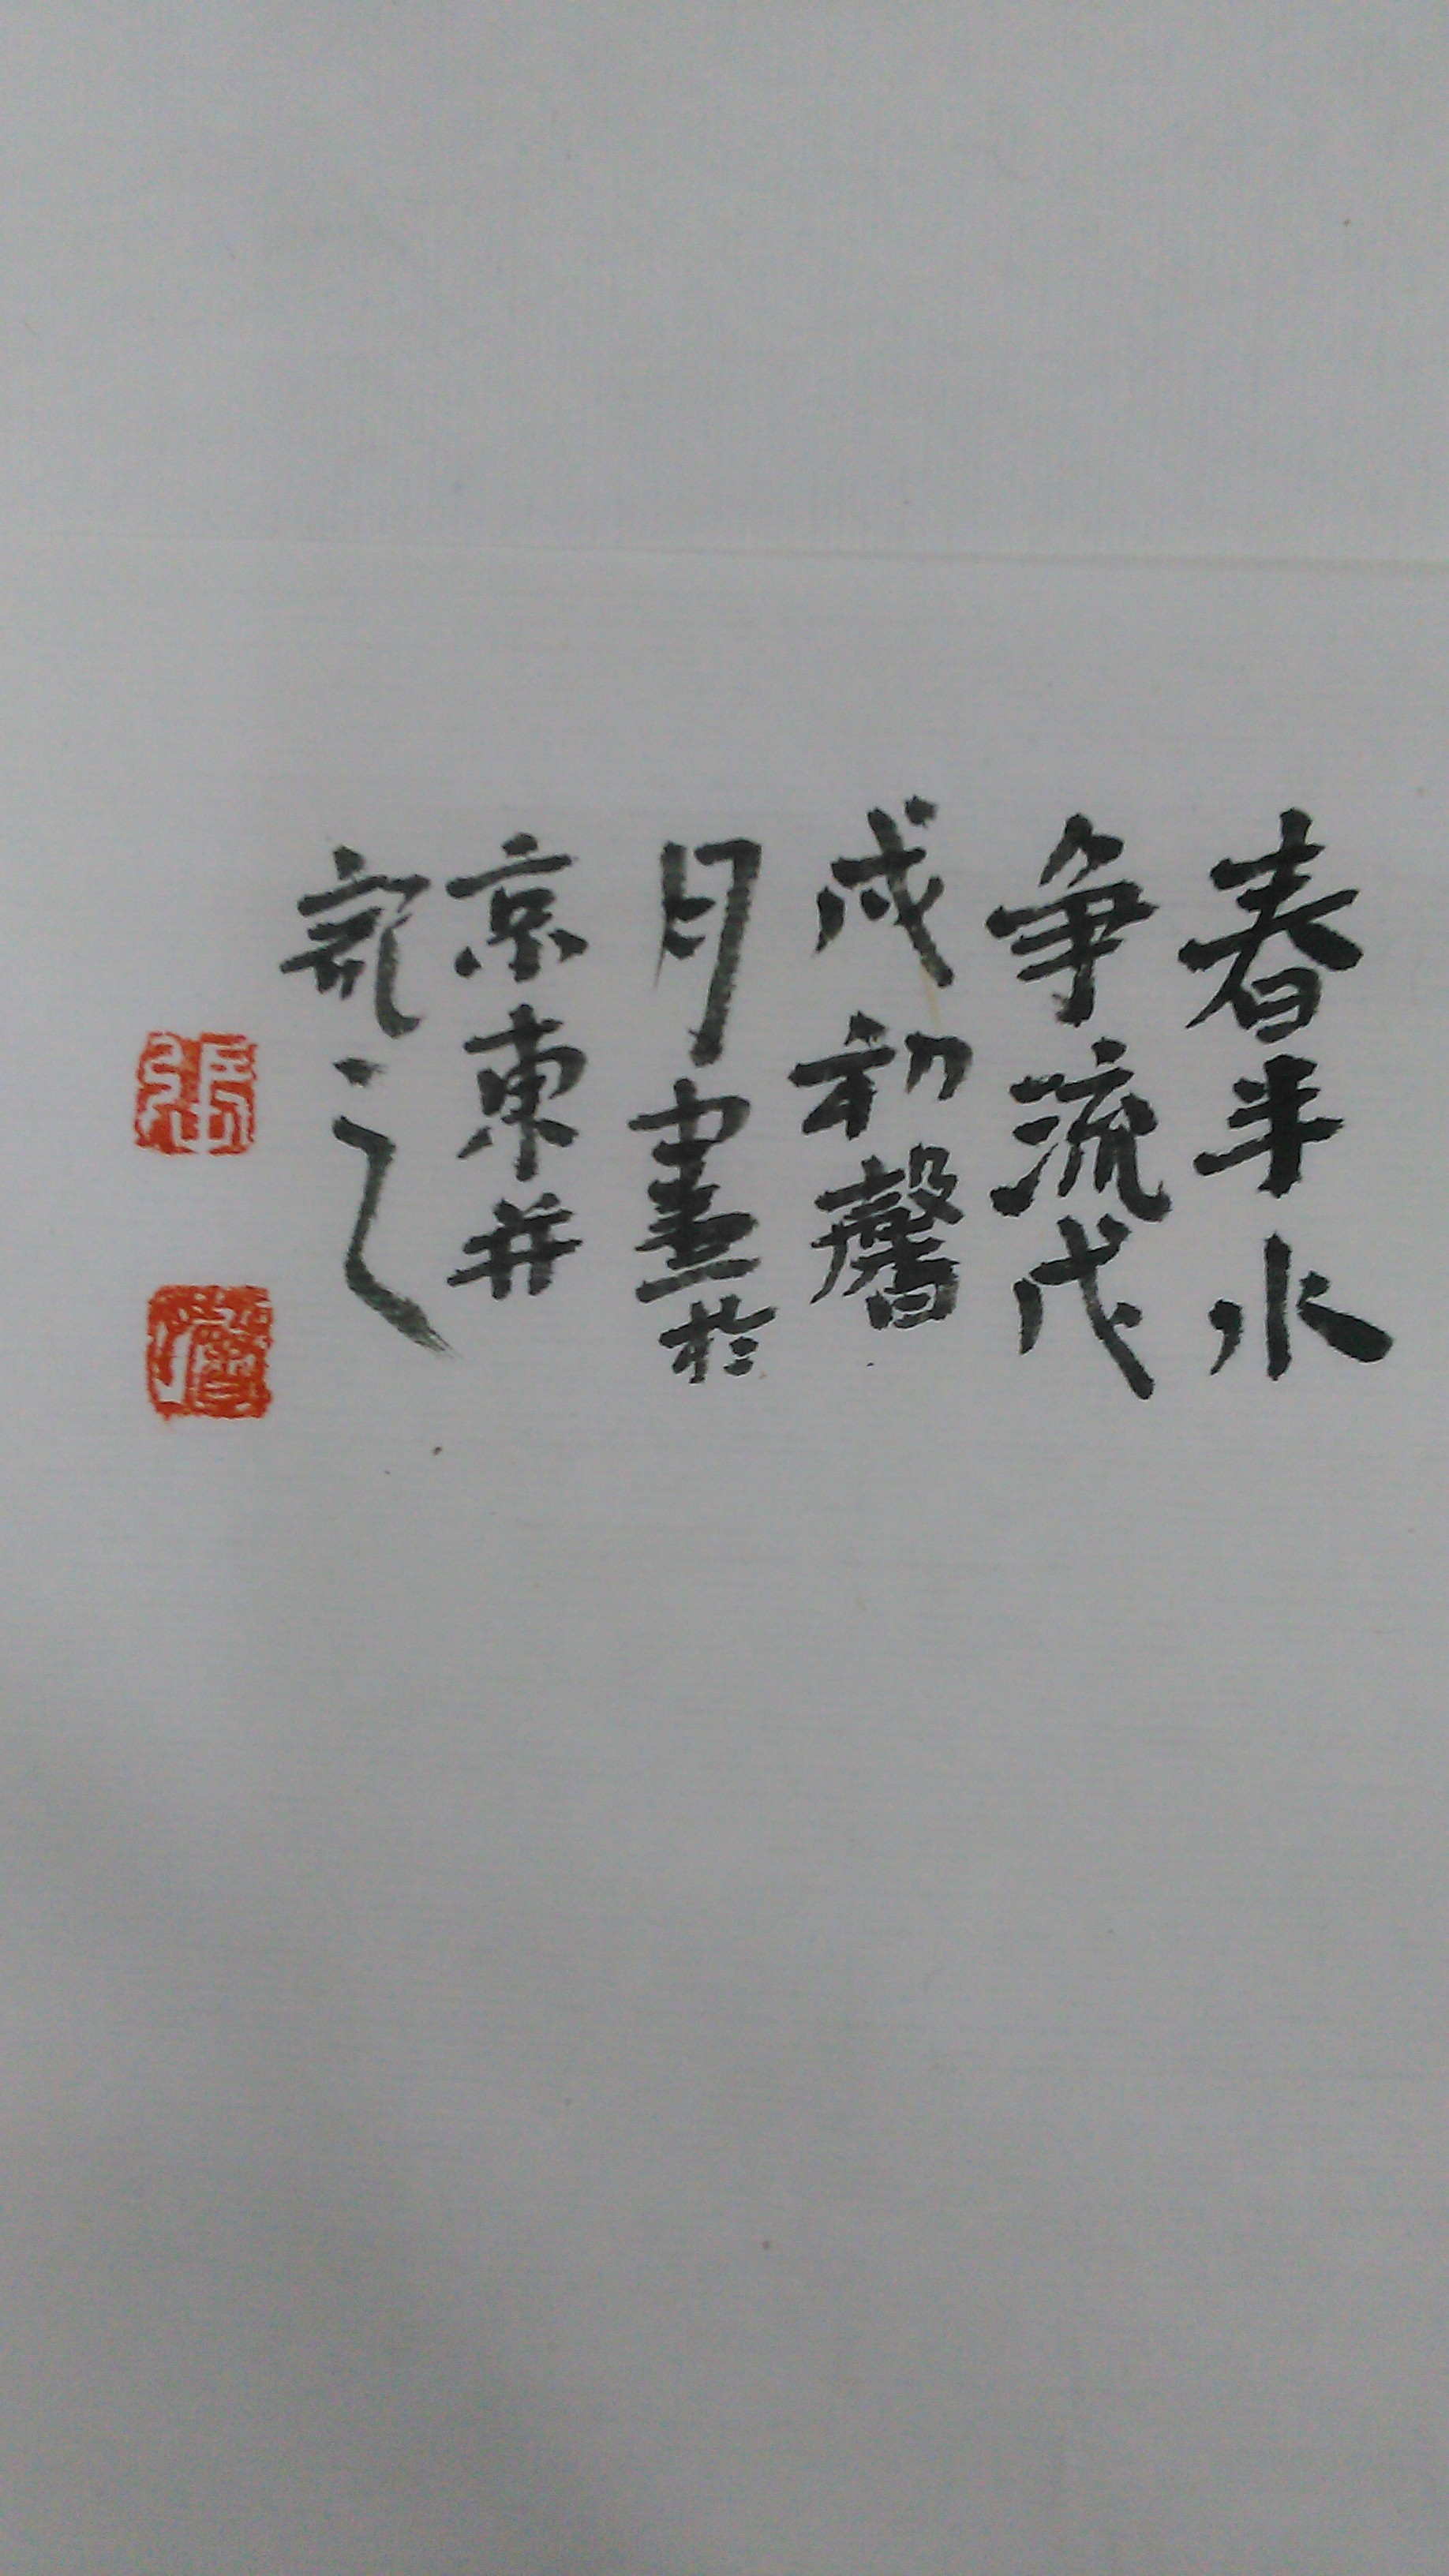 春半水
争流戊
戌初馨
月畫於
京東并
記之
張